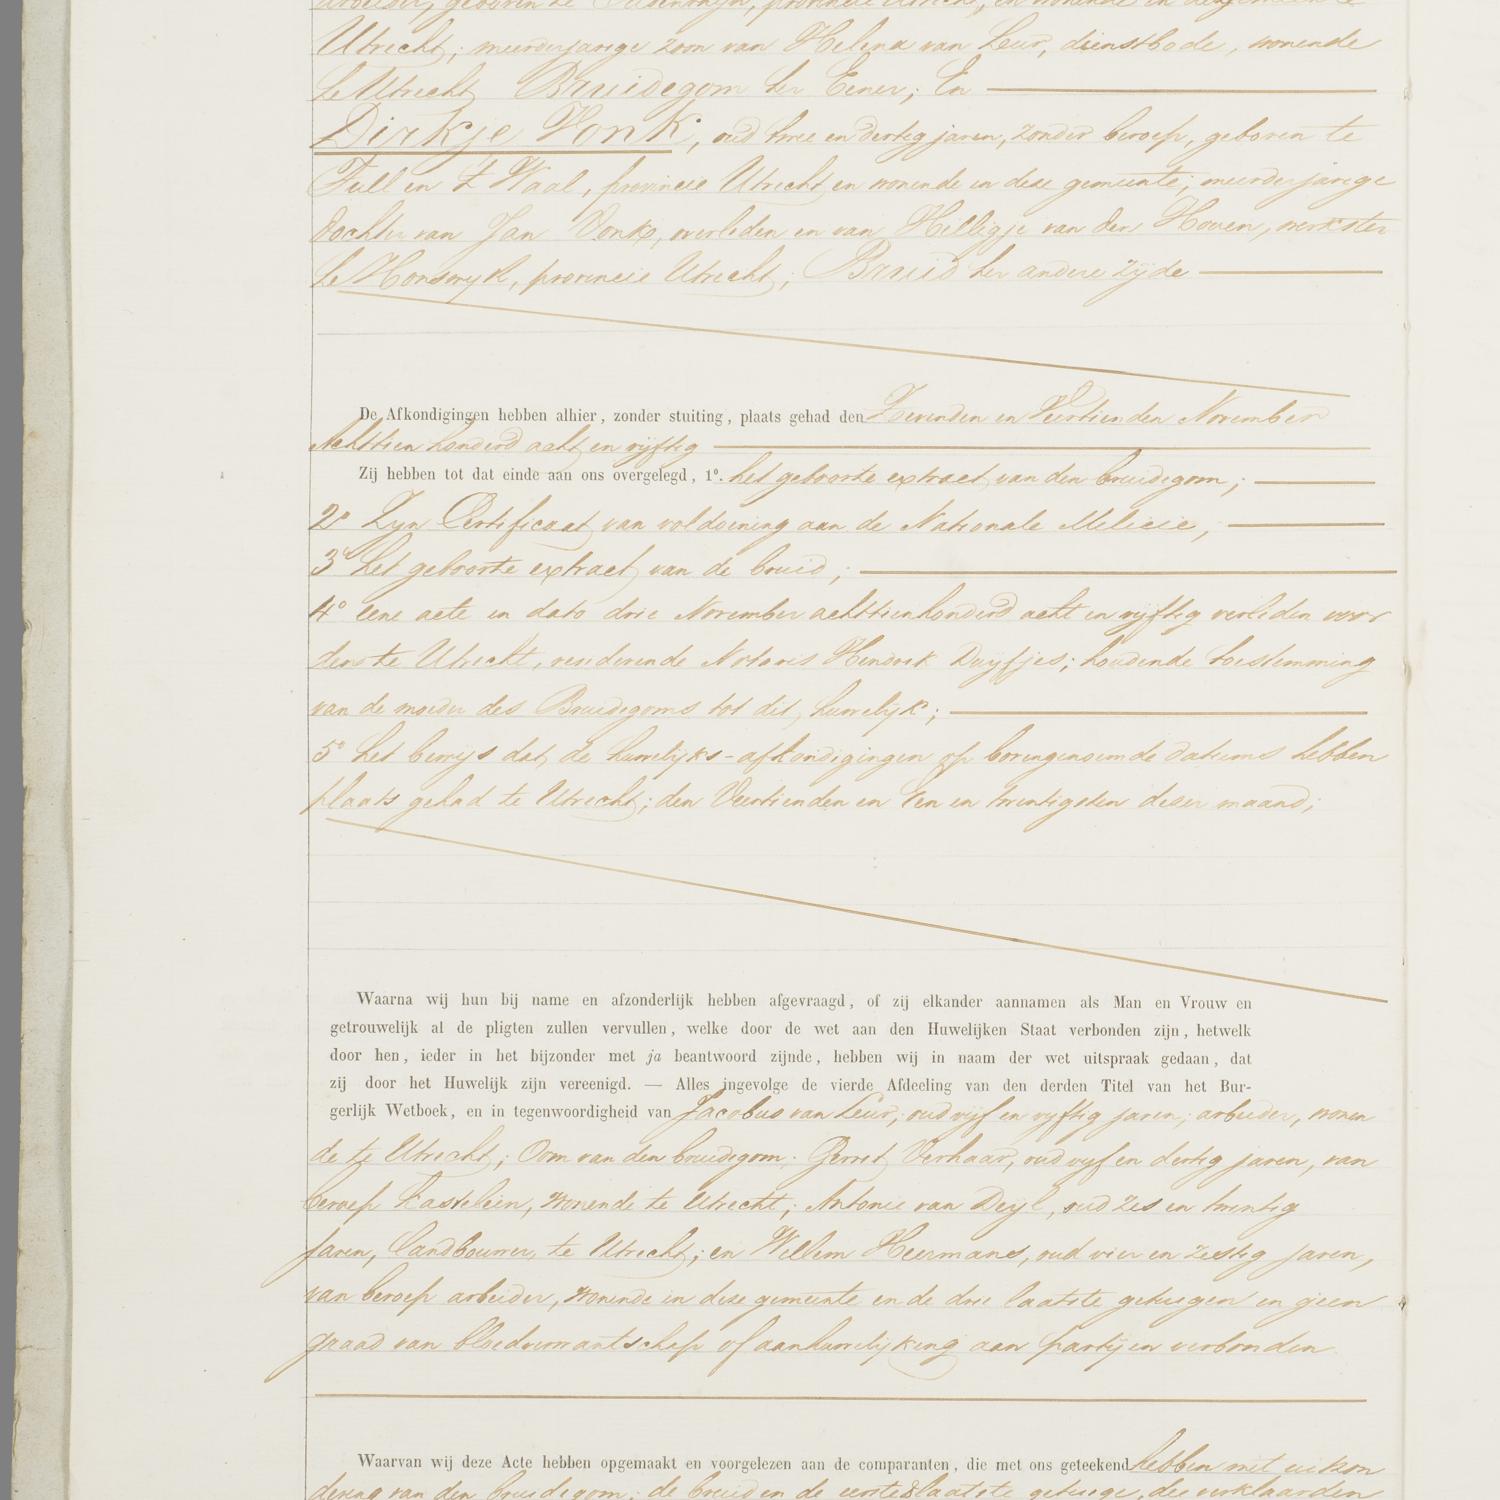 arbeider, geboren te Oudenrhijn, provincie Utrecht, en wonende in deze gemeente
Utrecht; meerderjarige zoon van Helena van Leur, dienstbode, wonende
te Utrecht, Bruidegom ter Eener; En
Dirkje Vonk, oud twee en dertig jaren, zonder beroep, geboren te
Tull en 't Waal, provincie Utrecht en wonende in deze gemeente; meerderjarige
dochter van Jan Vonk, overleden en van Hilligje van den Hoven, werkster
te Honswyk, provincie Utrecht; Bruid ter andere zijde
De Afkondigingen hebben alhier, zonder stuiting, plaats gehad den Zevenden en Veertienden November
Achttien honderd acht en vijftig
Zij hebben tot dat einde aan ons overgelegd, 1º. het geboorte extract van den bruidegom;
2º Zyn Certificaat van voldoening aan de Nationale Militie;
3º het geboorte extract van de bruid;
4º eene acte in dato drie November achttienhonderd acht en vijftig verleden voor
den te Utrecht, residerende Notaris Hendrik Duyfjes; houdende toestemming
van de moeder des Bruidegoms tot dit huwelijk;
5º het bewijs dat de huwelijks-afkondigingen op bovengenoemde datums hebben
plaats gehad te Utrecht; den Veertienden en een en twintigsten dezer maand;
Waarna wij hun bij name en afzonderlijk hebben afgevraagd, of zij elkander aannamen als Man en Vrouw en
getrouwelijk al de pligten zullen vervullen, welke door de wet aan den Huwelijken Staat verbonden zijn, hetwelk
door hen, ieder in het bijzonder met ja beantwoord zijnde, hebben wij in naam der wet uitspraak gedaan, dat
zij door het Huwelijk zijn vereenigd. — Alles ingevolge de vierde Afdeeling van den derden Titel van het Bur-
gerlijk Wetboek, en in tegenwoordigheid van Jacobus van Leur, oud vijf en vijftig jaren, arbeider, wonen
de te Utrecht; Oom van den bruidegom; Gerrit Verhaar, oud vijf en dertig jaren, van
beroep Kastelein, wonende te Utrecht; Antonie van Deyl, oud zes en twintig
jaren, landbouwer, te Utrecht; en Willem Heermans, oud vier en zestig jaren,
van beroep arbeider, wonende in deze gemeente en de drie laatste getuigen in geen
graad van bloedverwantschap of aanhuwelijking aan partijen verbonden
Waarvan wij deze Acte hebben opgemaakt en voorgelezen aan de comparanten, die met ons geteekend hebben met uitzon
dering van den bruidegom; de bruid en de eerste & laatste getuige, die verklaarden